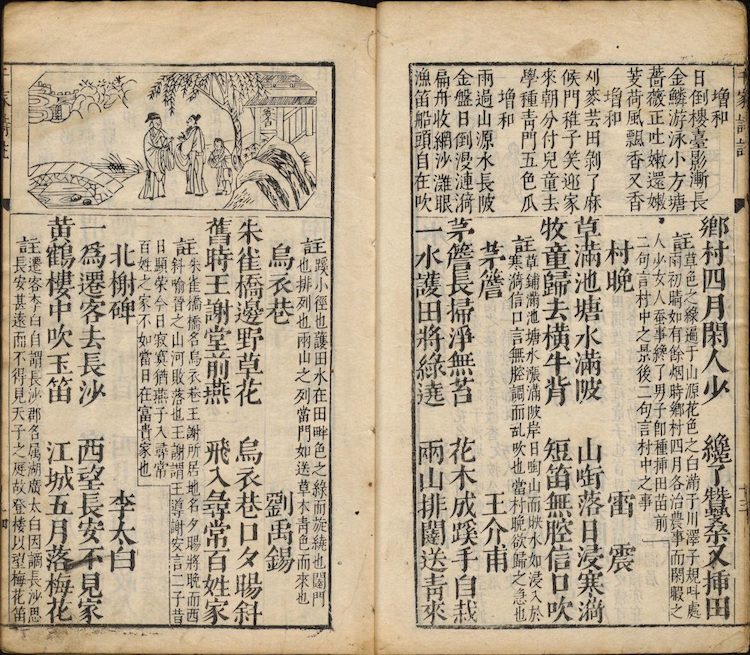 增和
日倒樓臺影漸長
金鱗游泳小方塘
薔薇正吐嫩還嫩
芰荷風飄香又香
增和
刈麥芸田剝了麻
候門稚子笑迎家
來朝分付兒童去
學種青門五色瓜
增和
雨過山源水長陂
金盤日倒漫漣漪
扁舟收網沙灘眼
漁笛船頭自在吹
鄉村四月閑人少 纔了蠶桑又挿田
註草色之綠遍于山源花色之白滿于川澤子規叫處
雨初晴如有餘烟時鄉村四月各治農事而閑暇之
人少女人蚕事終了男子即種挿田苗前
二句言村中之景後二句言村中之事
村晚 雷震
草滿池塘水滿陂 山啣落日浸寒漪
牧童歸去橫牛背 短笛無腔信口吹
註草鋪滿池塘水漲滿陂岸日啣山而映水如浸入於
寒漪信口言無腔調而亂吹也當村晚欲歸之急也
茅簷 王介甫
茅簷長掃淨無苔 花木成蹊手自栽
一水護田將綠遶 兩山排闥送靑來
註蹊小徑也護田水在田畔色之綠而旋繞也闥門
也排列也兩山之列當門如送草木青色而來也
烏衣巷 劉禹錫
朱雀橋邊野草花 烏衣巷口夕陽斜
舊時王謝堂前燕 飛入尋常百姓家
註朱雀橋橋名烏衣巷王謝所居地名夕陽將晩而西
斜喻晉之山河敗落也王謝謂王導謝安言二子昔
日顯榮今日寂寞猶燕子入尋常
百姓之家不如當日在富貴家也
北榭碑 李太白
一爲遷客去長沙 西望長安不見家
黃鶴樓中吹玉笛 江城五月落梅花
註遷客李白自謂長沙郡名属湖廣太白因謫長沙思
長安甚遠而不得見天子之庭故登樓以望梅花笛
千家詩註